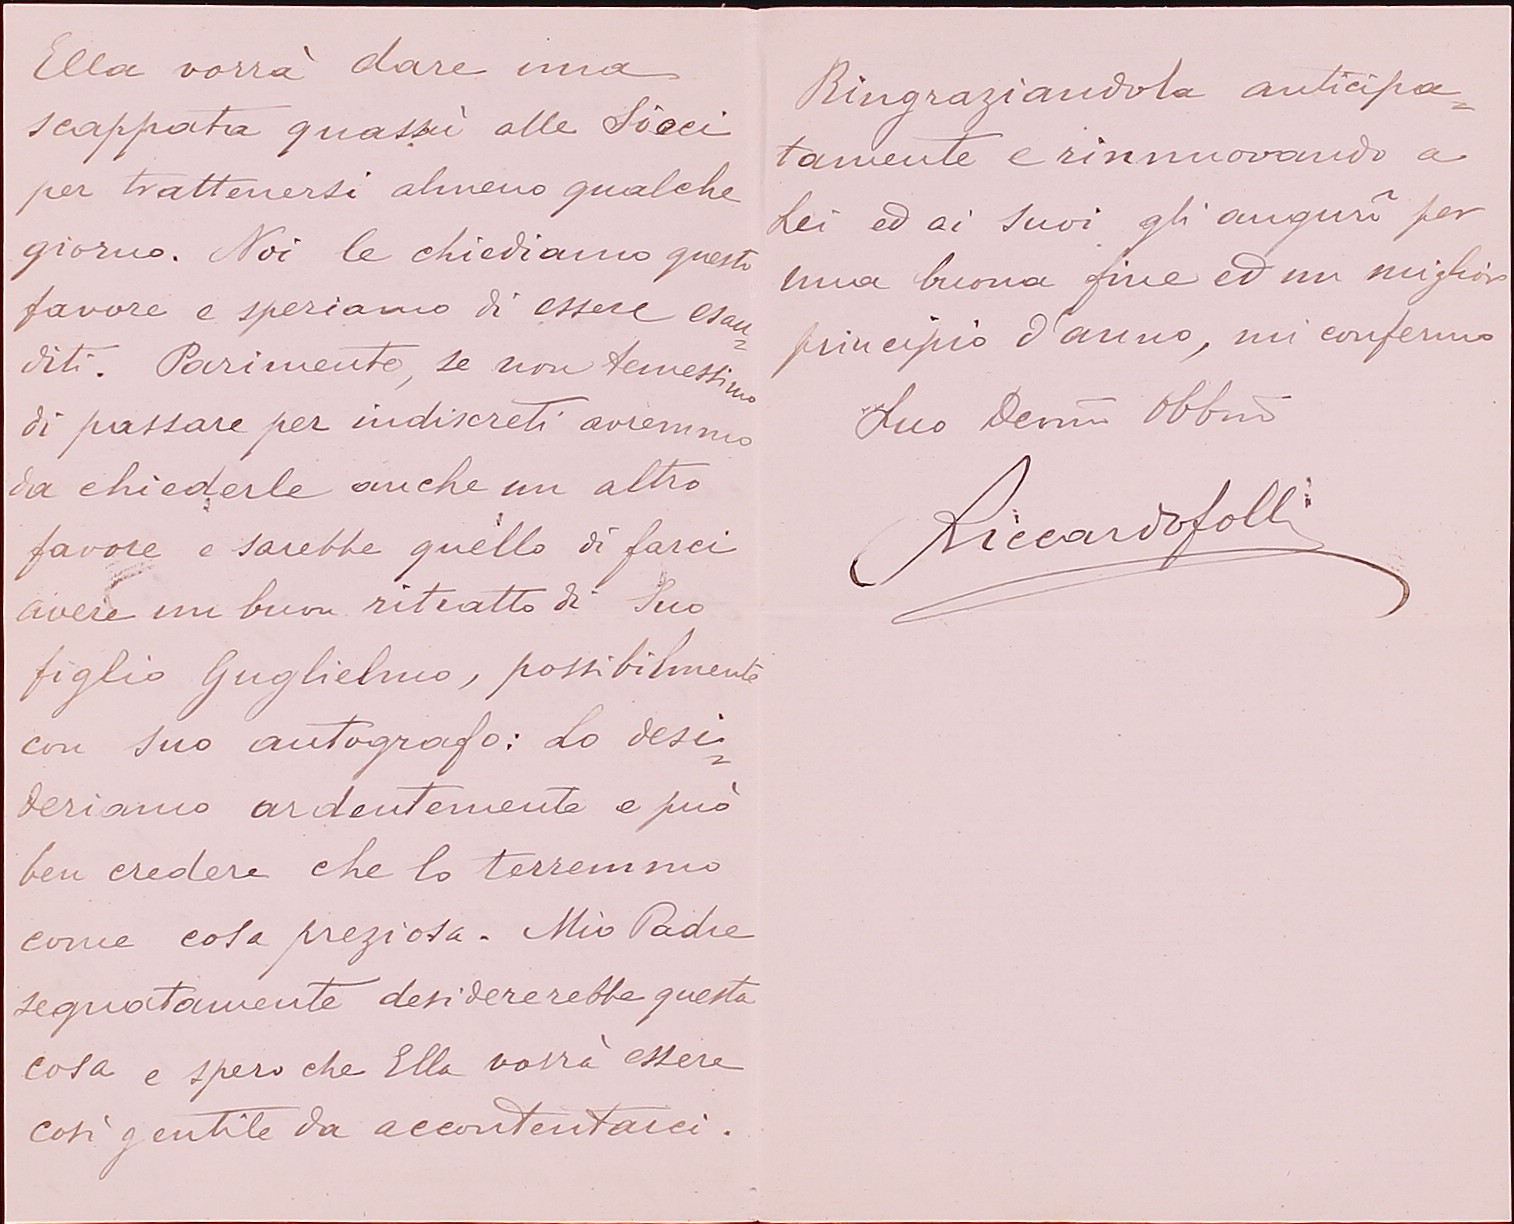 Ella vorrà dare una
scappata quassù alle Sieci
per trattenersi almeno qualche
giorno. Noi le chiediamo questo
favore e speriamo di essere esau=
diti. Parimente, se non temessimo
di passare per indiscreti avremmo
da chiederle anche un altro
favore e sarebbe quello di farci
avere un buon ritratto di Suo
figlio Guglielmo, possibilmente
con suo autografo: Lo desi=
deriamo ardentemente e può
ben credere che lo terremmo
come cosa preziosa. Mio Padre
segnatamente desidererebbe questa
cosa e spero che Ella vorrà essere
così gentile da accontentarci.
Ringraziandola anticipa=
tamente e rinnuovando a
Lei ed ai Suoi gli augurî per
una buona fine ed un miglior
principio d'anno, mi confermo
Suo Devmo Obbmo
Riccardo Folli